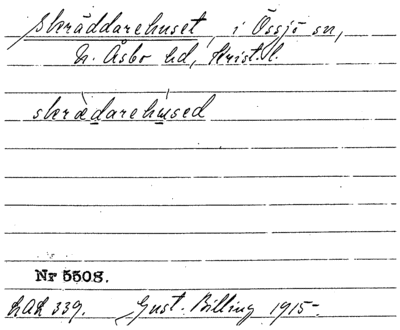 Skräddarehuset, i Össjö sn,
N. Åsbo hd, Krist. l.
skrædarehused
Nr 5508.
LAL 339. Gust. Billing 1915-